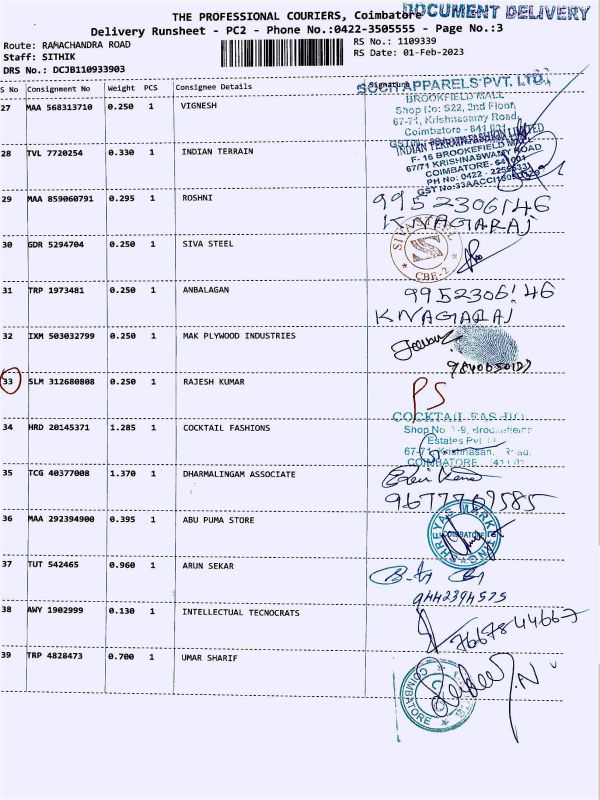 THE PROFESSIONAL COURIERS, Coimbatore DOCUMENT DELIVERY
Delivery Runsheet - PC2 - Phone No.:0422-3505555 - Page No.:3
Route: RAMACHANDRA ROAD RS No.: 1109339
Staff: SITHIK RS Date: 01-Feb-2023
DRS No.: DCJB110933903
S No Consignment No Weight PCS Consignee Details Signature
27 MAA 568313710 0.250 1 VIGNESH
APPARELS PVT. LTD.,
BROOKFIELD MALL
Shop No: S22, 2nd Floor,
67-71, Krishnaswamy Road,
Coimbatore - 641 001
28 TVL 7720254 0.330 1 INDIAN TERRAIN
INDIAN TERRAIN FASHION LIMITED
F- 16 BROOKEFIELD MALL
67/71 KRISHNASWAMY ROAD
COIMBATORE- 641001
29 MAA 859060791 0.295 1 ROSHNI
9952306146
K NAGARAJ
30 GDR 5294704 0.250 1 SIVA STEEL
SIVA
CBE-2
31 TRP 1973481 0.250 1 ANBALAGAN
9952306146
K NAGARAJ
32 IXM 503032799 0.250 1 MAK PLYWOOD INDUSTRIES
33 SLM 312680808 0.250 1 RAJESH KUMAR
PS
34 HRD 20145371 1.285 1 COCKTAIL FASHIONS
COCKTAIL
Shop No
Estates Pvt
67-71,
COIMBATORE
35 TCG 40377008 1.370 1 DHARMALINGAM ASSOCIATE
9677769585
36 MAA 292394900 0.395 1 ABU PUMA STORE
SHREYAS MARKETING
COIMBATORE
37 TUT 542465 0.960 1 ARUN SEKAR
9442394525
38 AWY 1902999 0.130 1 INTELLECTUAL TECNOCRATS
7667844667
39 TRP 4828473 0.700 1 UMAR SHARIF
COIMBATORE